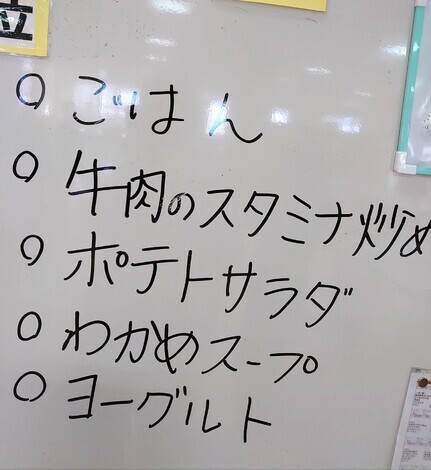 ○ ごはん
○ 牛肉のスタミナ炒め
○ ポテトサラダ
○ わかめスープ
○ ヨーグルト